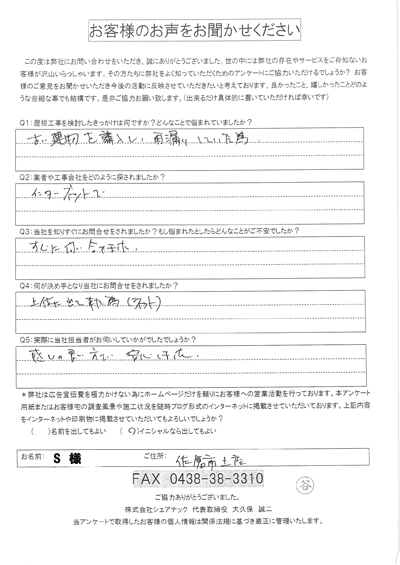 お客様のお声をお聞かせください
この度は弊社にお問い合わせをいただき、誠にありがとうございました。世の中には弊社の存在やサービスをご存知ないお
客様が沢山いらっしゃいます。その方たちに弊社をよく知っていただくためのアンケートにご協力いただけるでしょうか？ お客
様のご意見をお聞かせいただき今後の活動に反映させていきたいと考えております。良かったこと、嬉しかったことどのよ
うな些細な事でも結構です。是非ご協力お願い致します。（出来るだけ具体的に書いていただければ幸いです）
Q1：屋根工事を検討したきっかけは何ですか？どんなことで悩まれていましたか？
古い建物を購入し、雨漏りしていた為
Q2：業者や工事会社をどのように探されましたか？
インターネットで
Q3：当社を知りすぐにお問合せをされましたか？もし悩まれたとしたらどんなことがご不安でしたか？
すぐに問い合せました。
Q4：何が決め手となり当社にお問合せをされましたか？
上位に出て来た為（ネット）
Q5：実際に当社担当者がお伺いしていかがでしたでしょうか？
感じの良い方で安心しました。
＊弊社は広告宣伝費を極力かけない為にホームページだけを頼りにお客様への営業活動を行っております。本アンケート
用紙またはお客様宅の調査風景や施工状況を随時ブログ形式のインターネットに掲載させていただいております。上記内容
をインターネットや印刷物に掲載させていただいてもよろしいでしょうか？
（　）名前を出してもよい　（○）イニシャルなら出してもよい
お名前： S 様　ご住所： 佐倉市
FAX 0438-38-3310
谷
ご協力ありがとうございました。
株式会社シェアテック 代表取締役 大久保 誠二
当アンケートで取得したお客様の個人情報は関係法規に基づき厳正に管理いたします。